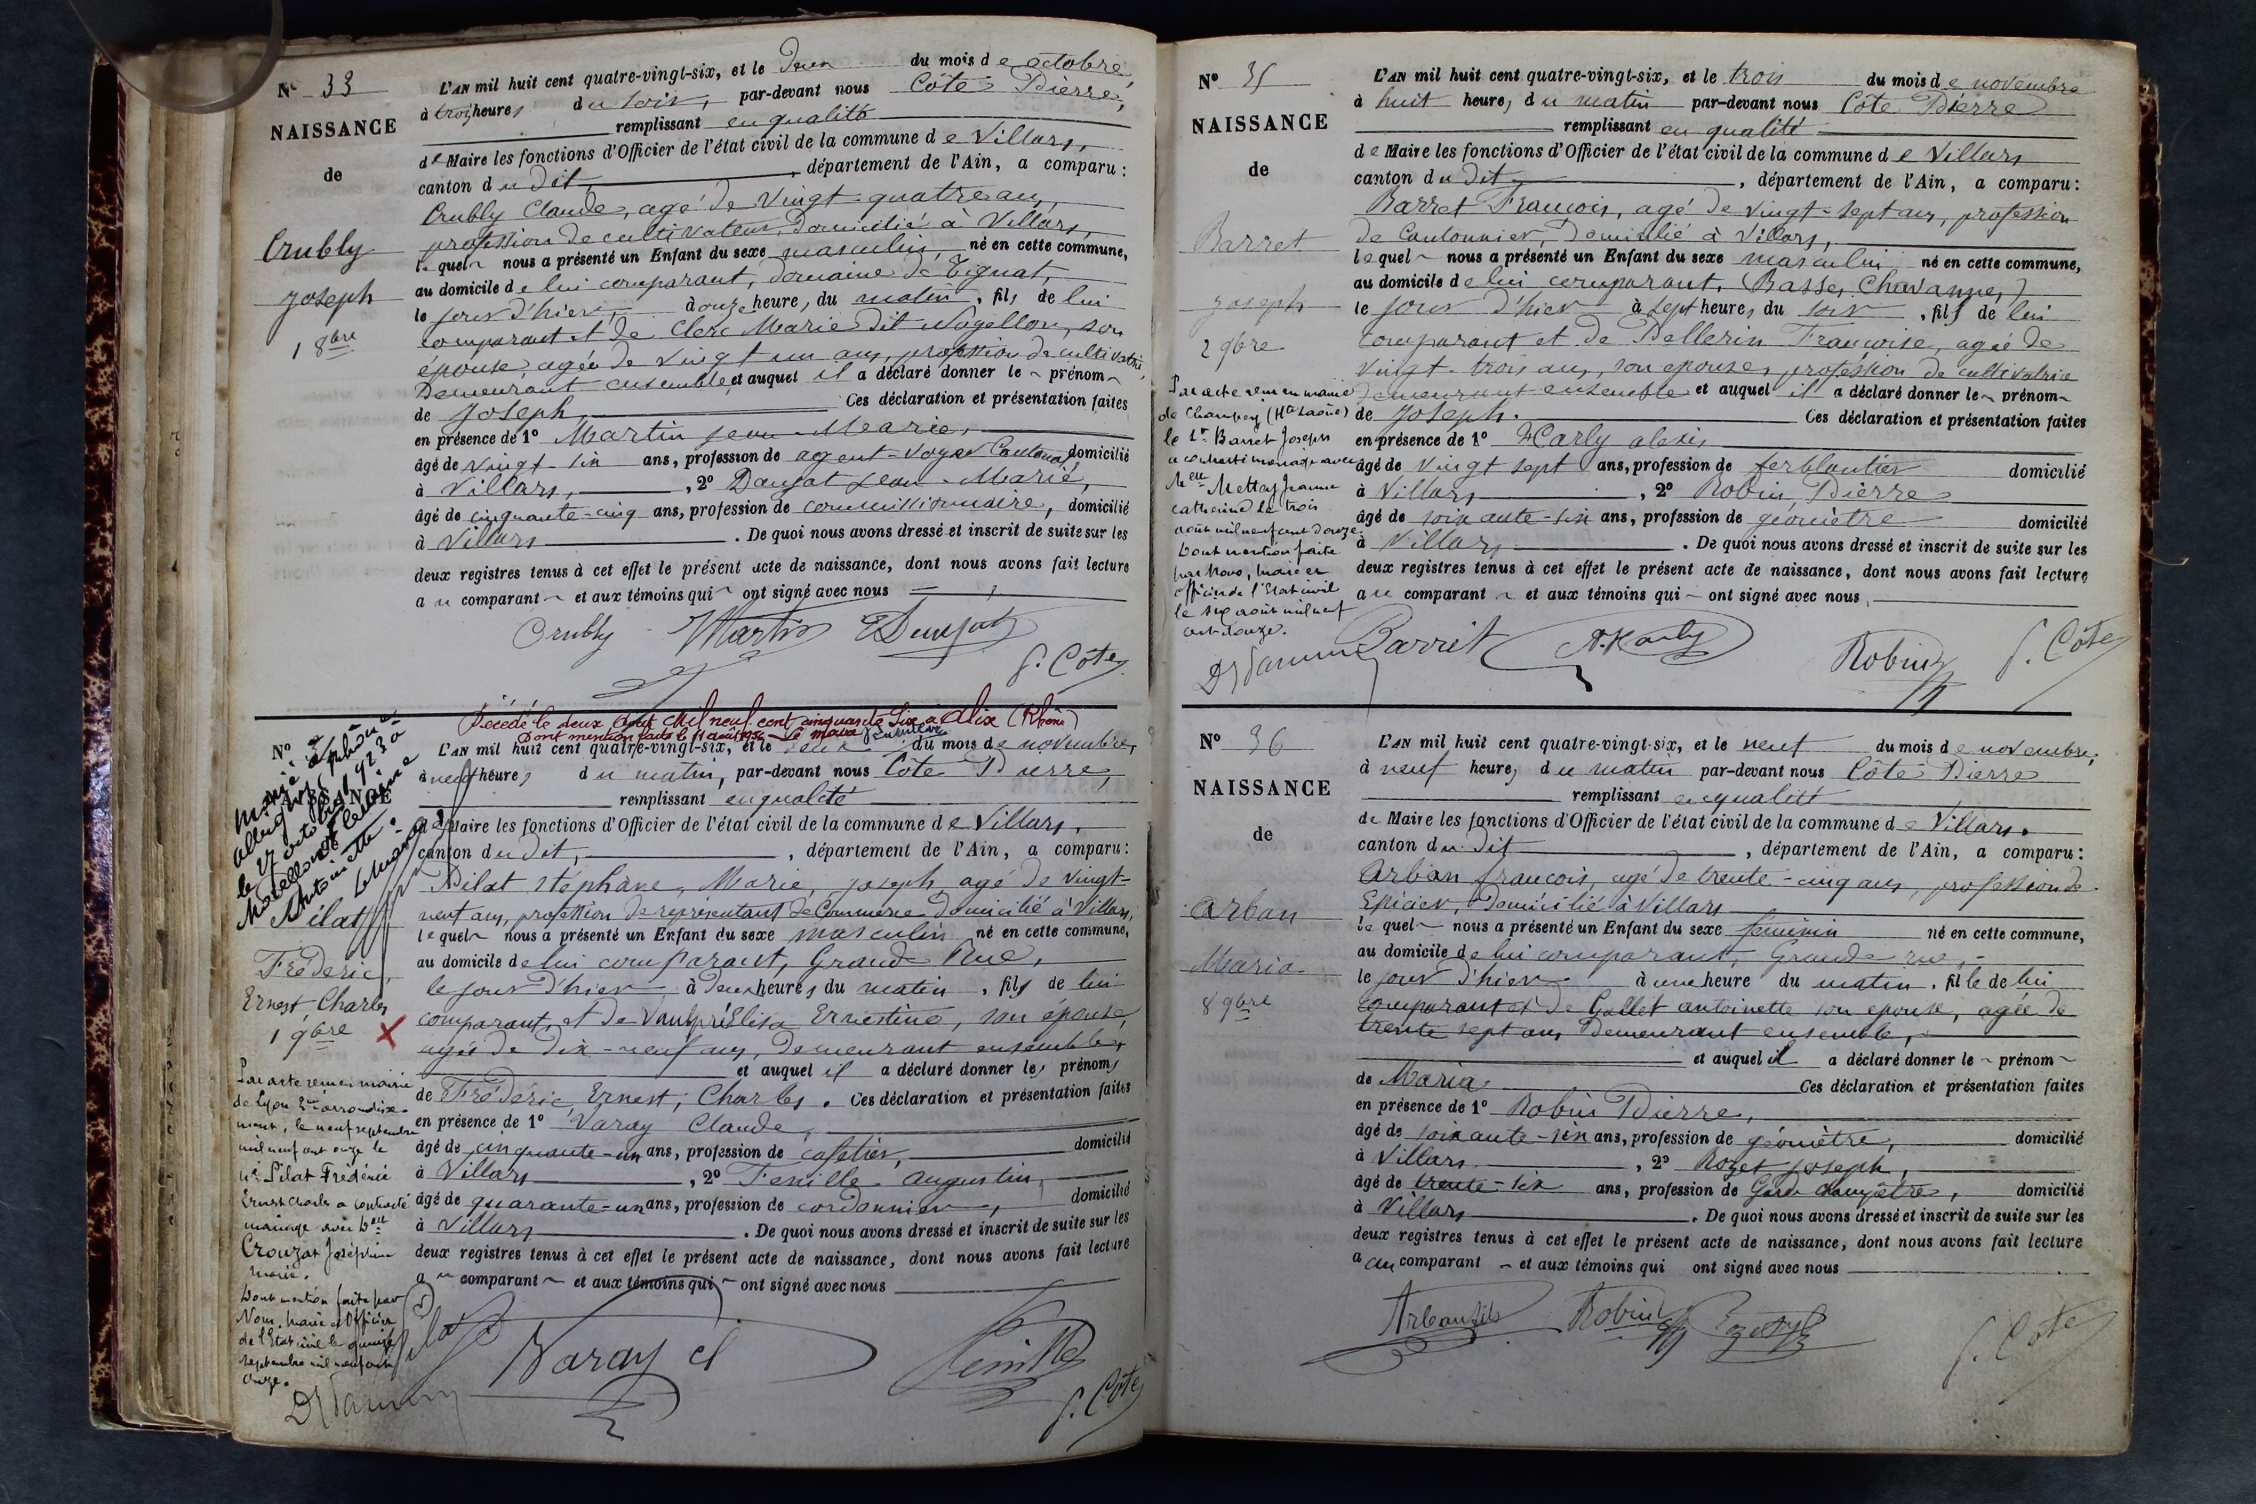 N° 33
NAISSANCE
de
Crubly
Joseph
1 8bre
L'AN mil huit cent quatre-vingt-six, et le deux du mois de octobre,
à trois heures du soir, par-devant nous Côte Pierre,
remplissant en qualité
de Maire les fonctions d'Officier de l'état civil de la commune de Villars,
canton du dit, département de l'Ain, a comparu :
Crubly Claude, agé de vingt quatre ans,
profession de cultivateur, domicilié à Villars,
lequel nous a présenté un Enfant du sexe masculin, né en cette commune,
au domicile de lui comparant, domaine de Tignat,
le jour d'hier, à onze heure, du matin, fils de lui
comparant et de Clerc Marie dit Nogellon, son
épouse, agée de vingt un ans, profession de cultivatrice,
Demeurant ensemble, et auquel il a déclaré donner le prénom
de Joseph, Ces déclaration et présentation faites
en présence de 1° Martin Jean-Marie,
âgé de vingt-six ans, profession de agent-voyer Cantonal, domicilié
à Villars, , 2° Danjat Jean-Marie,
âgé de cinquante-cinq ans, profession de commissionnaire, domicilié
à Villars. De quoi nous avons dressé et inscrit de suite sur les
deux registres tenus à cet effet le présent acte de naissance, dont nous avons fait lecture
au comparant et aux témoins qui ont signé avec nous
Crubly Martin Danjat
P. Côte
Décédé le deux Août Mil neuf cent cinquante Six à Alix (Rhône)
Dont mention faite le 11 août 1956 Le maire
N°
NAISSANCE
Marié à
le 27 octobre 1923 à
Antoinette.
Le maire
Pilat
Frédéric,
Ernest Charles
1 9bre
Par acte reçu en mairie
de Lyon 3me arrondisse-
ment, le neuf septembre
mil neuf cent onze le
Sr Pilat Frédéric
Ernest Charles a contracté
mariage avec Delle
Crouzat Joséphine
Marie.
Dont mention faite par
Nous, Maire et Officier
de l'Etat civil le quinze
septembre mil neuf cent
onze.
L'AN mil huit cent quatre-vingt-six, et le deux du mois de novembre,
à neuf heures du matin, par-devant nous Côte Pierre,
remplissant en qualité
de Maire les fonctions d'Officier de l'état civil de la commune de Villars,
canton du dit, département de l'Ain, a comparu :
Pilat Stéphane, Marie, Joseph, agé de vingt-
neuf ans, profession de représentant de Commerce domicilié à Villars,
lequel nous a présenté un Enfant du sexe masculin né en cette commune,
au domicile de lui comparant, Grande Rue,
le jour d'hier à deux heures du matin, fils de lui
comparant, et de Vaulpré Elisa Ernestine, son épouse,
agée de dix-neuf ans, demeurant ensemble,
et auquel il a déclaré donner les prénoms
de Frédéric, Ernest, Charles. Ces déclaration et présentation faites
en présence de 1° Varay Claude,
âgé de cinquante-un ans, profession de cafetier, domicilié
à Villars, 2° Fenille Augustin,
âgé de quarante-un ans, profession de cordonnier, domicilié
à Villars. De quoi nous avons dressé et inscrit de suite sur les
deux registres tenus à cet effet le présent acte de naissance, dont nous avons fait lecture
au comparant et aux témoins qui ont signé avec nous
Pilat Varay Cl Fenille
P. Côte
N° 35
NAISSANCE
de
Barret
Joseph
2 9bre
Par acte reçu en mairie
de Champey (Hte Saône)
le Sr Barret Joseph
a contracté mariage avec
Melle Mettay Jeanne
Catherine le trois
août mil neuf cent douze.
Dont mention faite
par Nous, Maire et
Officier de l'Etat civil
le six août mil neuf
cent douze.
L'AN mil huit cent quatre-vingt-six, et le trois du mois de novembre
à huit heure, du matin par-devant nous Côte Pierre
remplissant en qualité
de Maire les fonctions d'Officier de l'état civil de la commune de Villars
canton du dit, département de l'Ain, a comparu :
Barret François, agé de vingt-sept ans, profession
de Cantonnier, domicilié à Villars,
lequel nous a présenté un Enfant du sexe masculin né en cette commune,
au domicile de lui comparant, Basse, Chavanne,
le jour d'hier à sept heures, du soir, fils de lui
comparant et de Pellerin Françoise, agée de
vingt-trois ans, son épouse, profession de cultivatrice
demeurant ensemble et auquel il a déclaré donner le prénom
de Joseph. Ces déclaration et présentation faites
en présence de 1° Karly Alexis
âgé de vingt sept ans, profession de ferblantier domicilié
à Villars, 2° Robin Pierre
âgé de soixante-six ans, profession de géomètre domicilié
à Villars. De quoi nous avons dressé et inscrit de suite sur les
deux registres tenus à cet effet le présent acte de naissance, dont nous avons fait lecture
au comparant et aux témoins qui ont signé avec nous
Barret A. Karly Robin P. Côte
N° 36
NAISSANCE
de
Arban
Maria
8 9bre
L'AN mil huit cent quatre-vingt-six, et le neuf du mois de novembre,
à neuf heure, du matin par-devant nous Côte Pierre
remplissant en qualité
de Maire les fonctions d'Officier de l'état civil de la commune de Villars.
canton du dit, département de l'Ain, a comparu :
Arban François, agé de trente-cinq ans, profession de
Epicier, domicilié à Villars
lequel nous a présenté un Enfant du sexe féminin né en cette commune,
au domicile de lui comparant, Grande rue,
le jour d'hier à une heure du matin, fille de lui
comparant et de Gallet Antoinette son épouse, agée de
trente sept ans, demeurant ensemble,
et auquel il a déclaré donner le prénom
de Maria Ces déclaration et présentation faites
en présence de 1° Robin Pierre,
âgé de soixante-six ans, profession de géomètre, domicilié
à Villars, 2° Rozet Joseph,
âgé de trente-six ans, profession de Garde champêtre, domicilié
à Villars. De quoi nous avons dressé et inscrit de suite sur les
deux registres tenus à cet effet le présent acte de naissance, dont nous avons fait lecture
a au comparant et aux témoins qui ont signé avec nous
Arban fils Robin Rozet P. Côte